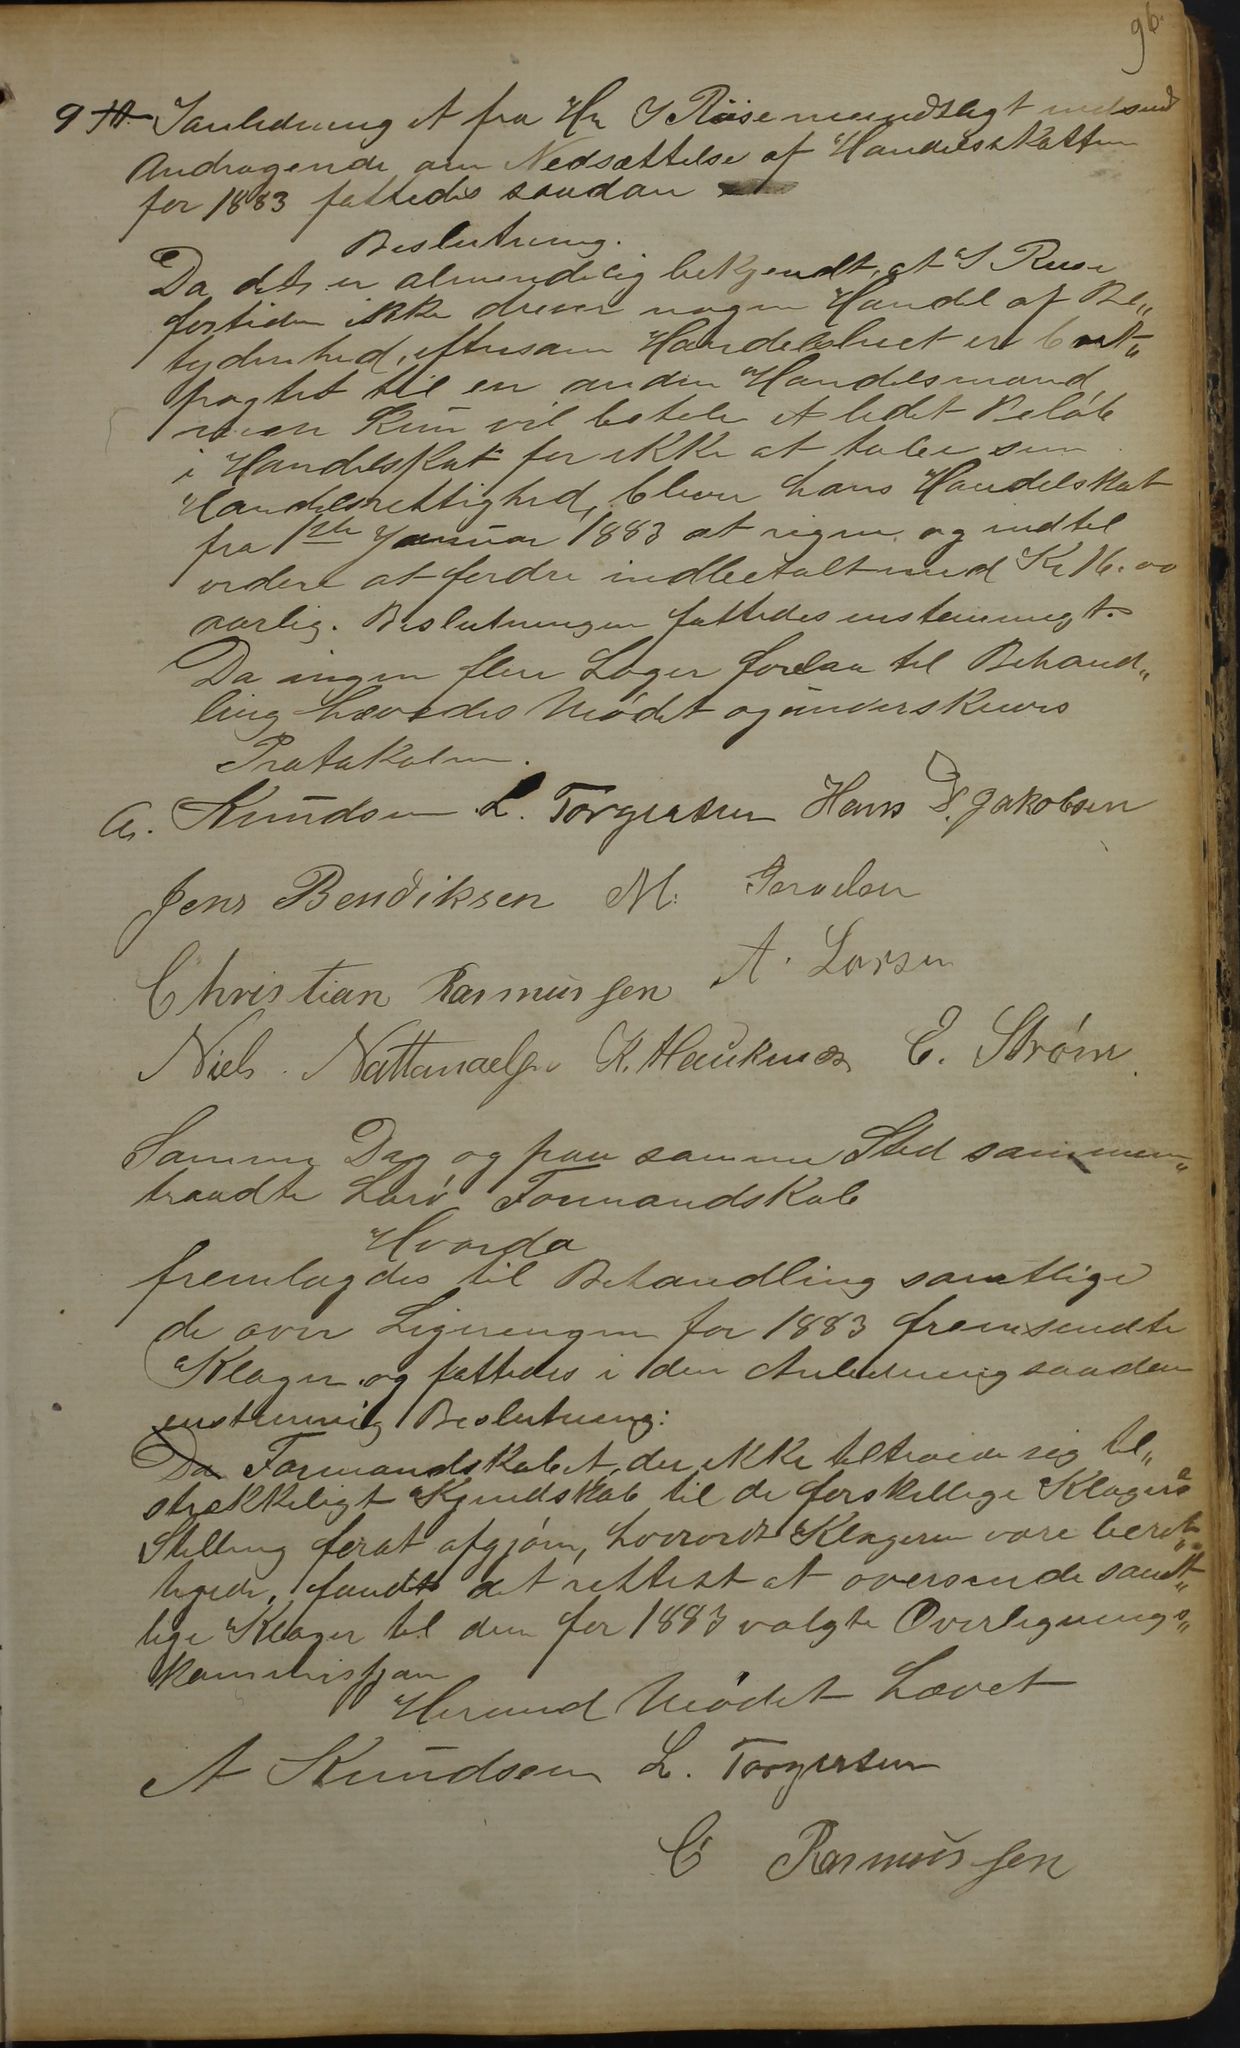 96.
9 Ianledning et fra Hr I Rüse mundtligt indsend
Andragende om Nedsættelse af Handelsskatten
for 1883 fattedes saadan
Beslutning.
Da det er almindelig bekjendt, at I Ruse
fortiden ikke driver nogen Handel af Be„
tydenhed, eftersom Handelshuset er bort„
pagtet til en anden Handelsmand
men kun vil betale et lidet Beløb
i Handelskat for ikke at tabe sin
Handelsrettighed, bliver hans Handelskat
fra 1ste Januar 1883 at regne og indtil
videre at fordre indbetalt med Kr 16.00
aarlig. Beslutningen fattedes enstemmigt.
Da ingen flere Sager forelaa til Behand„
ling hævedes Mødet og underskreves
Protokolen.
A. Knudsen L. Torgersen Hans D. Jakobsen
Jens Bendiksen M.
Christian Rasmussen A. Larsen
Niels Nattanaelsen K. Haukenes E. Strøm
Samme Dag og paa samme Sted sammen„
traadte Formandskab
Hvorda
fremlagdes til Behandling samtlige
de over Ligningen for 1883 fremsendte
Klager og fattedes i den Anledning saadan
enstemmig Beslutning:
Da Formandskabet, der ikke tiltroede sig til„
strekkeligt Kjendskab til de forskellige Klageres
Stilling forat afgjøre, hvorvidt Klagerne vare beret„
tigede, fandt det rettest at oversende samt„
lige Klager til den for 1883 valgte Overlignings„
kommissjon
Herved Mødet hævet
A Knudsen L. Torgersen
C Rasmussen